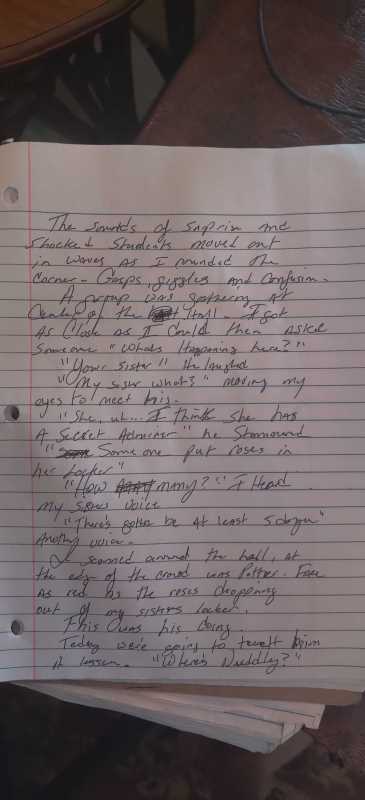 The sounds of suprise and
shocked students moved out
in waves as I rounded the
corner - Gasps, giggles and confusion.
A group was gathering at
Center of the hall. I got
As close as I could then asked
someone "Whats Happening here?"
"Your sister" He laughed
"My sister what?" moving my
eyes to meet his.
"She, uh... I think she has
A secret Admirer" he stammored
"Some one put roses in
her locker"
"How many?" I Heard
my sisters voice
"There's gotta be at least 5 dozen"
Another voice.
I scanned around the hall, at
the edge of the crowd was Potter. Face
as red as the roses dropping
out of my sisters locker.
This was his doing.
Today we're going to teach him
A lesson. "Where's Nuddley?"